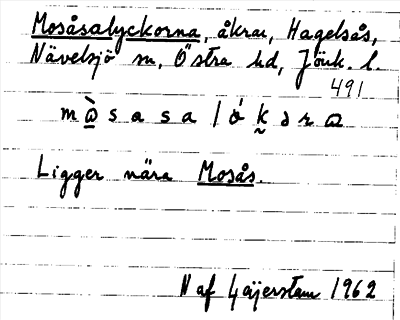 Mosåsalyckorna, åkrar, Hagelsås,
Nävelsjö sn, Östra hd, Jönk. l.
491
Ligger nära Mosås.
N af Gäjerstam 1962